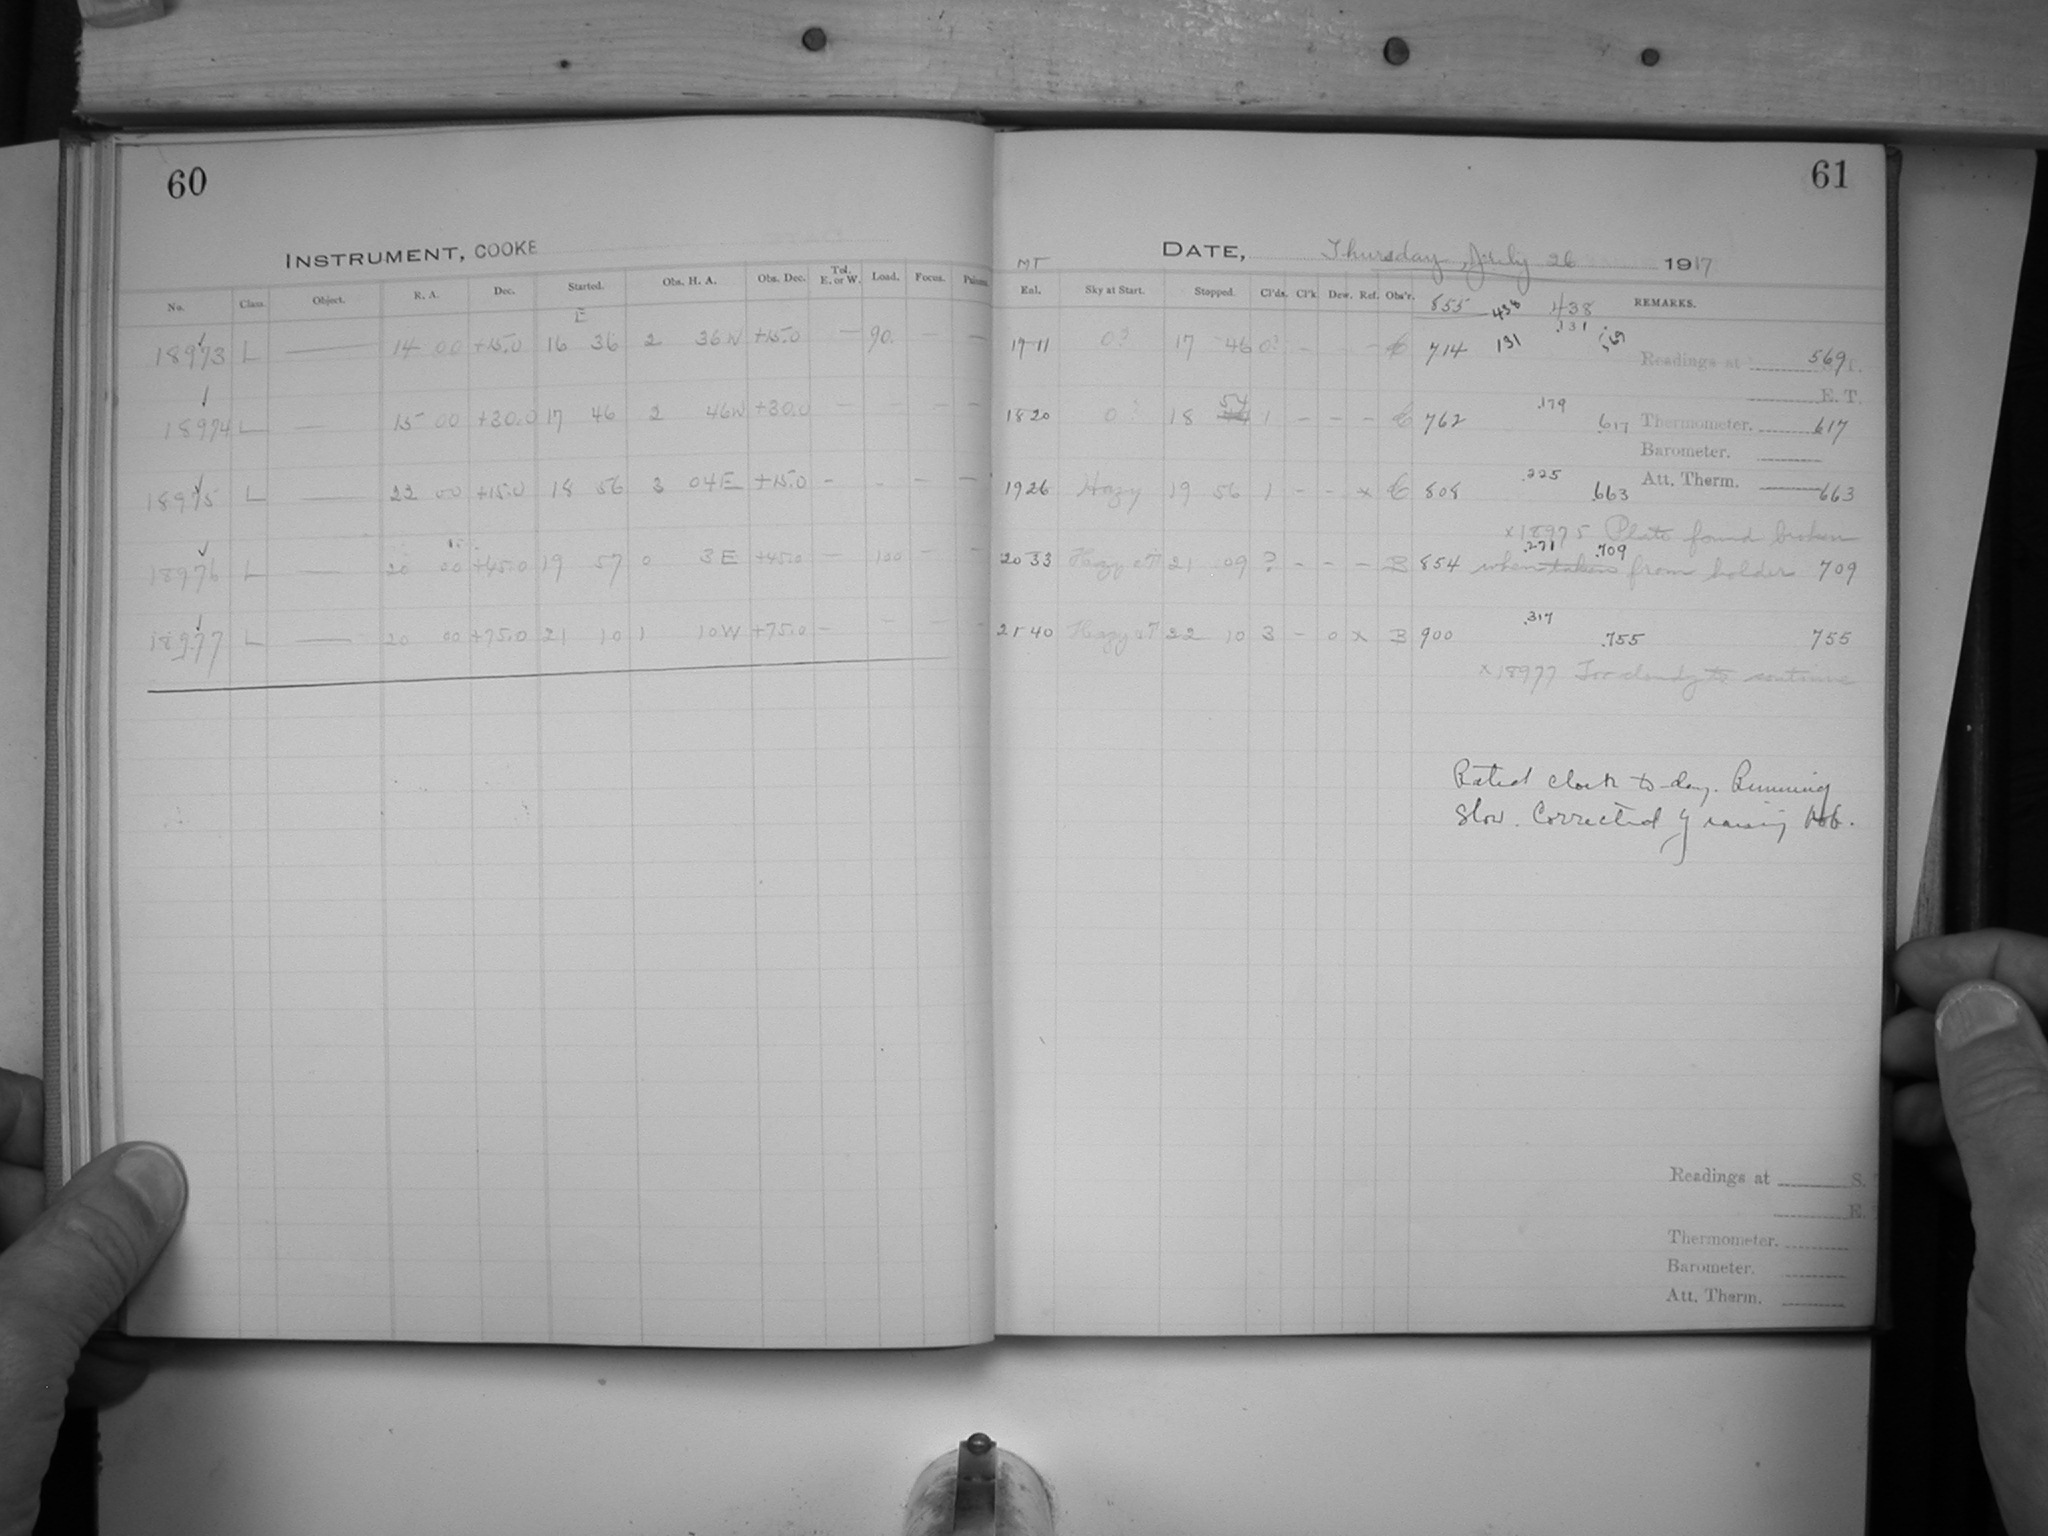 60
INSTRUMENT, COOKE
No. Class. Object. R. A. Dec. Started. Obs. H. A. Obs. Dec. Tel. E. or W. Load. Focus.
E
18973 L — 14 00 +15.0 16 36 2 36W +15.0 — 90. — —
18974 L — 15 00 +30.0 17 46 2 46W +30.0 — — — —
18975 L — 22 00 +15.0 18 56 3 04E +15.0 - - - —
18976 L — 20 00 +45.0 19 57 0 3E +45.0 — 100 - -
18977 L — 20 00 +75.0 21 10 1 10W +75.0 — - - -
61
DATE, Thursday, July 26 1917
MT
Eal. Sky at Start. Stopped. Cl'ds. Cl'k. Dew. Ref. Obs'r. 855 438 438 REMARKS.
17 11 0? 17 46 0? - - - C 714 131 .131 .569 Readings at 569
E. T.
18 20 0? 18 54 1 - - - C 762 .179 .617 Thermometer. 617
Barometer.
19 26 Hazy 19 56 1 - - x C 808 .225 .663 Att. Therm. 663
x18975 Plate found broken
20 33 21 09 ? - - - B 854 when taken from holder .271 .709 709
21 40 22 10 3 - 0 x B 900 .317 .755 755
x18977 Too cloudy to continue
Rated clock to-day. Running
slow. Corrected by raising bob.
Readings at S.
E.
Thermometer.
Barometer.
Att. Therm.